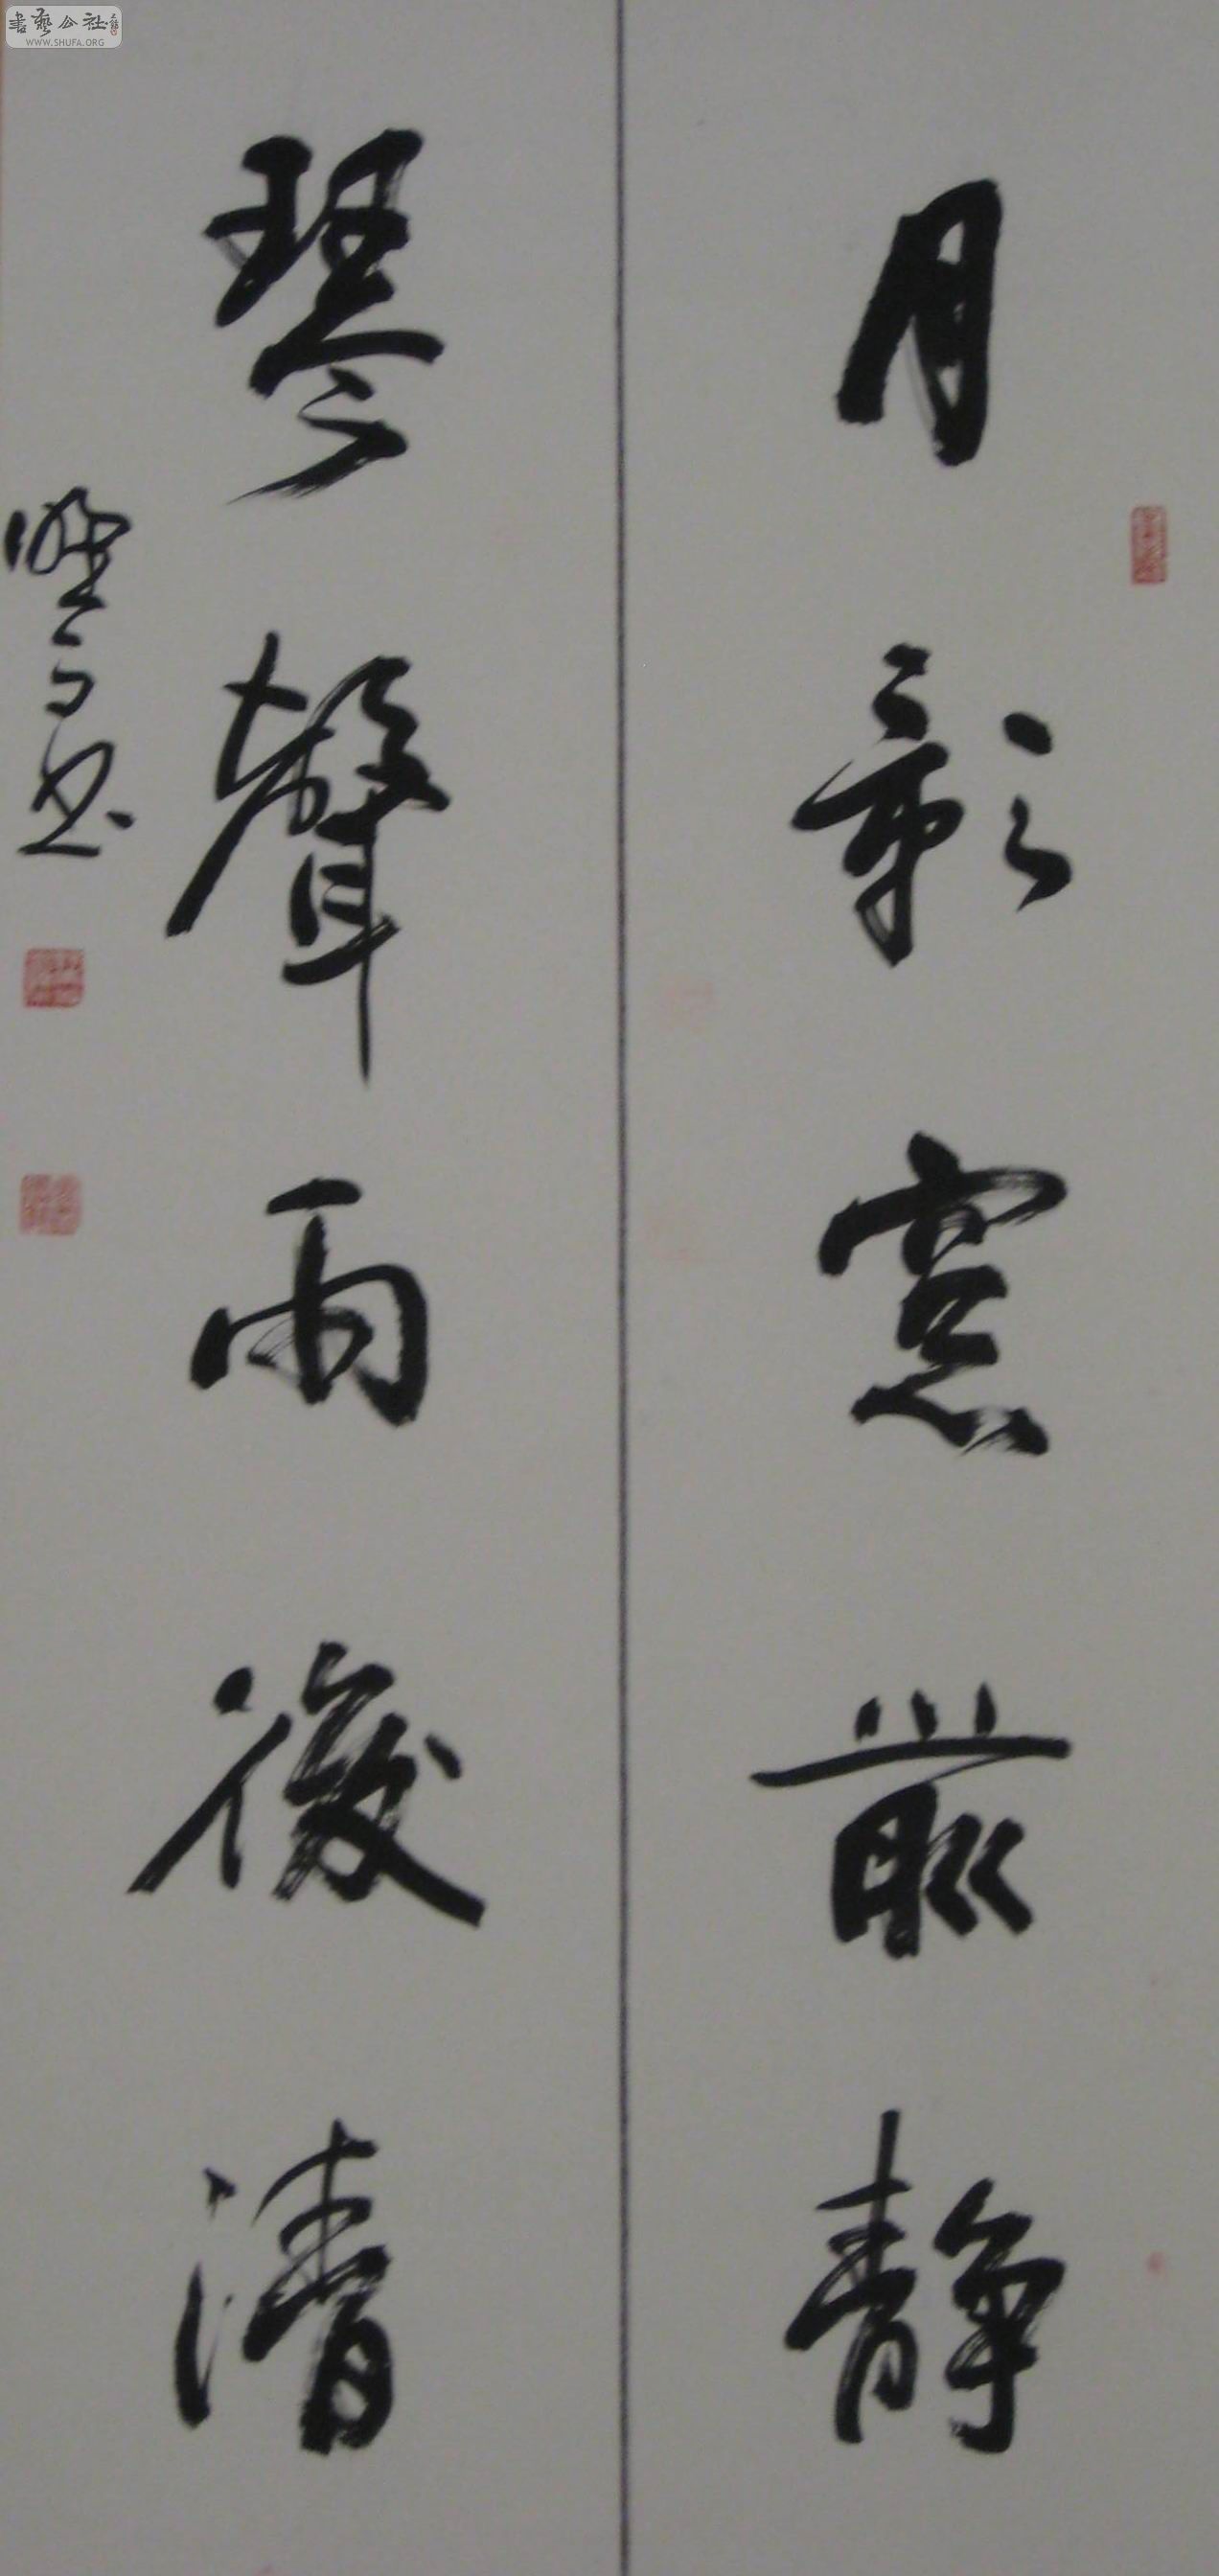 月影窓前静
琴聲雨後清
書藝公社
WWW.SHUFA.ORG